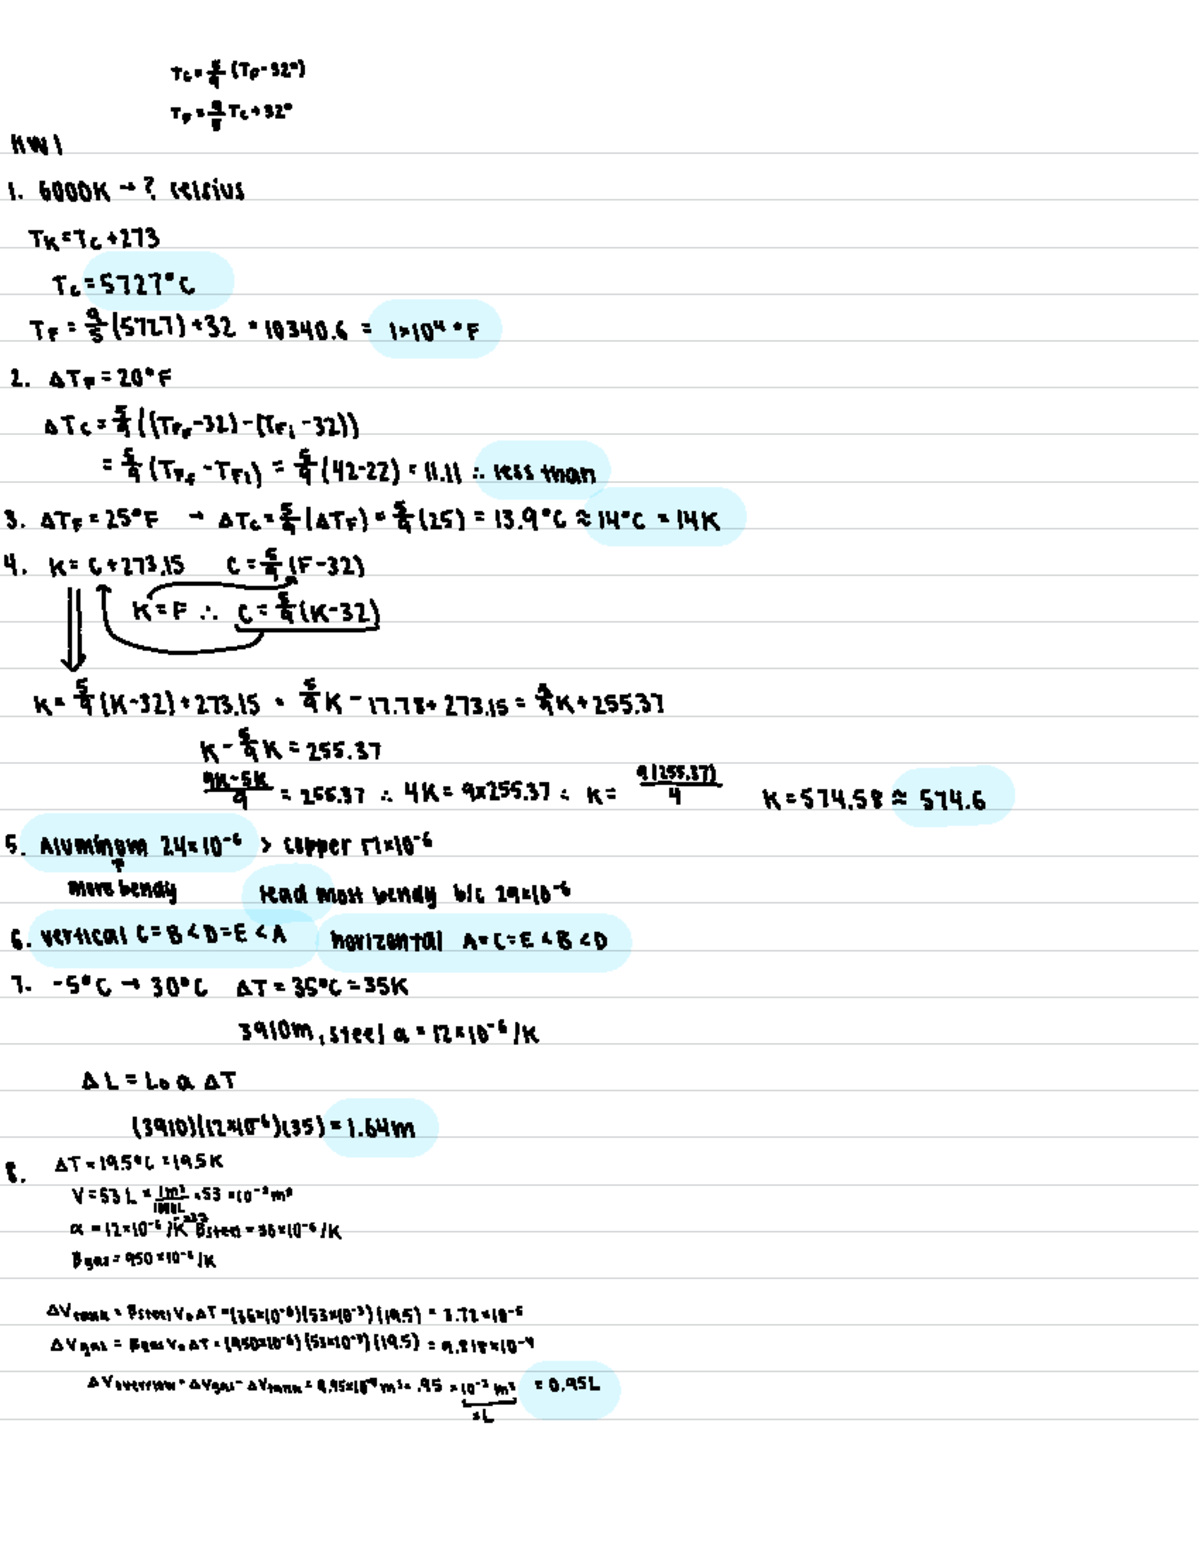 Tc = 5/9 (TF - 32°)
TF = 9/5 Tc + 32°
HW 1
1. 6000K → ? Celsius
TK = Tc + 273
Tc = 5727°C
TF = 9/5 (5727) + 32 = 10340.6 = 1×10⁴ °F
2. ΔTF = 20°F
ΔTc = 5/9 ((TFf - 32) - (TFi - 32))
= 5/9 (TFf - TFi) = 5/9 (42-22) = 11.11 ∴ less than
3. ΔTF = 25°F → ΔTc = 5/9 (ΔTF) = 5/9 (25) = 13.9°C ≈ 14°C = 14K
4. K = C + 273.15 C = 5/9 (F - 32)
K = F ∴ C = 5/9 (K - 32)
K = 5/9 (K - 32) + 273.15 = 5/9 K - 17.78 + 273.15 = 5/9 K + 255.37
K - 5/9 K = 255.37
(9K - 5K)/9 = 255.37 ∴ 4K = 9×255.37 ∴ K = 9(255.37)/4 K = 574.58 ≈ 574.6
5. Aluminum 24×10⁻⁶ > copper 17×10⁻⁶
↑
more bendy lead most bendy b/c 29×10⁻⁶
6. vertical C = B < D = E < A horizontal A = C = E < B < D
7. -5°C → 30°C ΔT = 35°C = 35K
3910m, steel α = 12×10⁻⁶ /K
ΔL = L₀ α ΔT
(3910)(12×10⁻⁶)(35) = 1.64m
8. ΔT = 19.5°C = 19.5K
V = 53 L × 1m³/1000L = 53 × 10⁻³ m³
α = 12×10⁻⁶ /K βsteel = 36×10⁻⁶ /K
βgas = 950 × 10⁻⁶ /K
ΔVtank = βsteel V₀ ΔT = (36×10⁻⁶)(53×10⁻³)(19.5) = 3.72×10⁻⁵
ΔVgas = βgas V₀ ΔT = (950×10⁻⁶)(53×10⁻³)(19.5) = 9.818×10⁻⁴
ΔVoverflow = ΔVgas - ΔVtank = 9.45×10⁻⁴ m³ = .95 × 10⁻³ m³ = 0.95L
= L